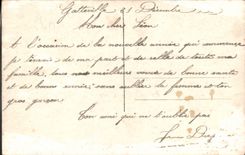 31 Décembre
Mon cher Léon
A l'occasion de la nouvelle année qui commence
je t'envoie de ma part et de celle de toute ma
famille, tous nos meilleurs vœux de bonne santé
et de bonne année, sans oublier ta femme et ton
gros garçon
Ton ami qui ne t'oublie pas